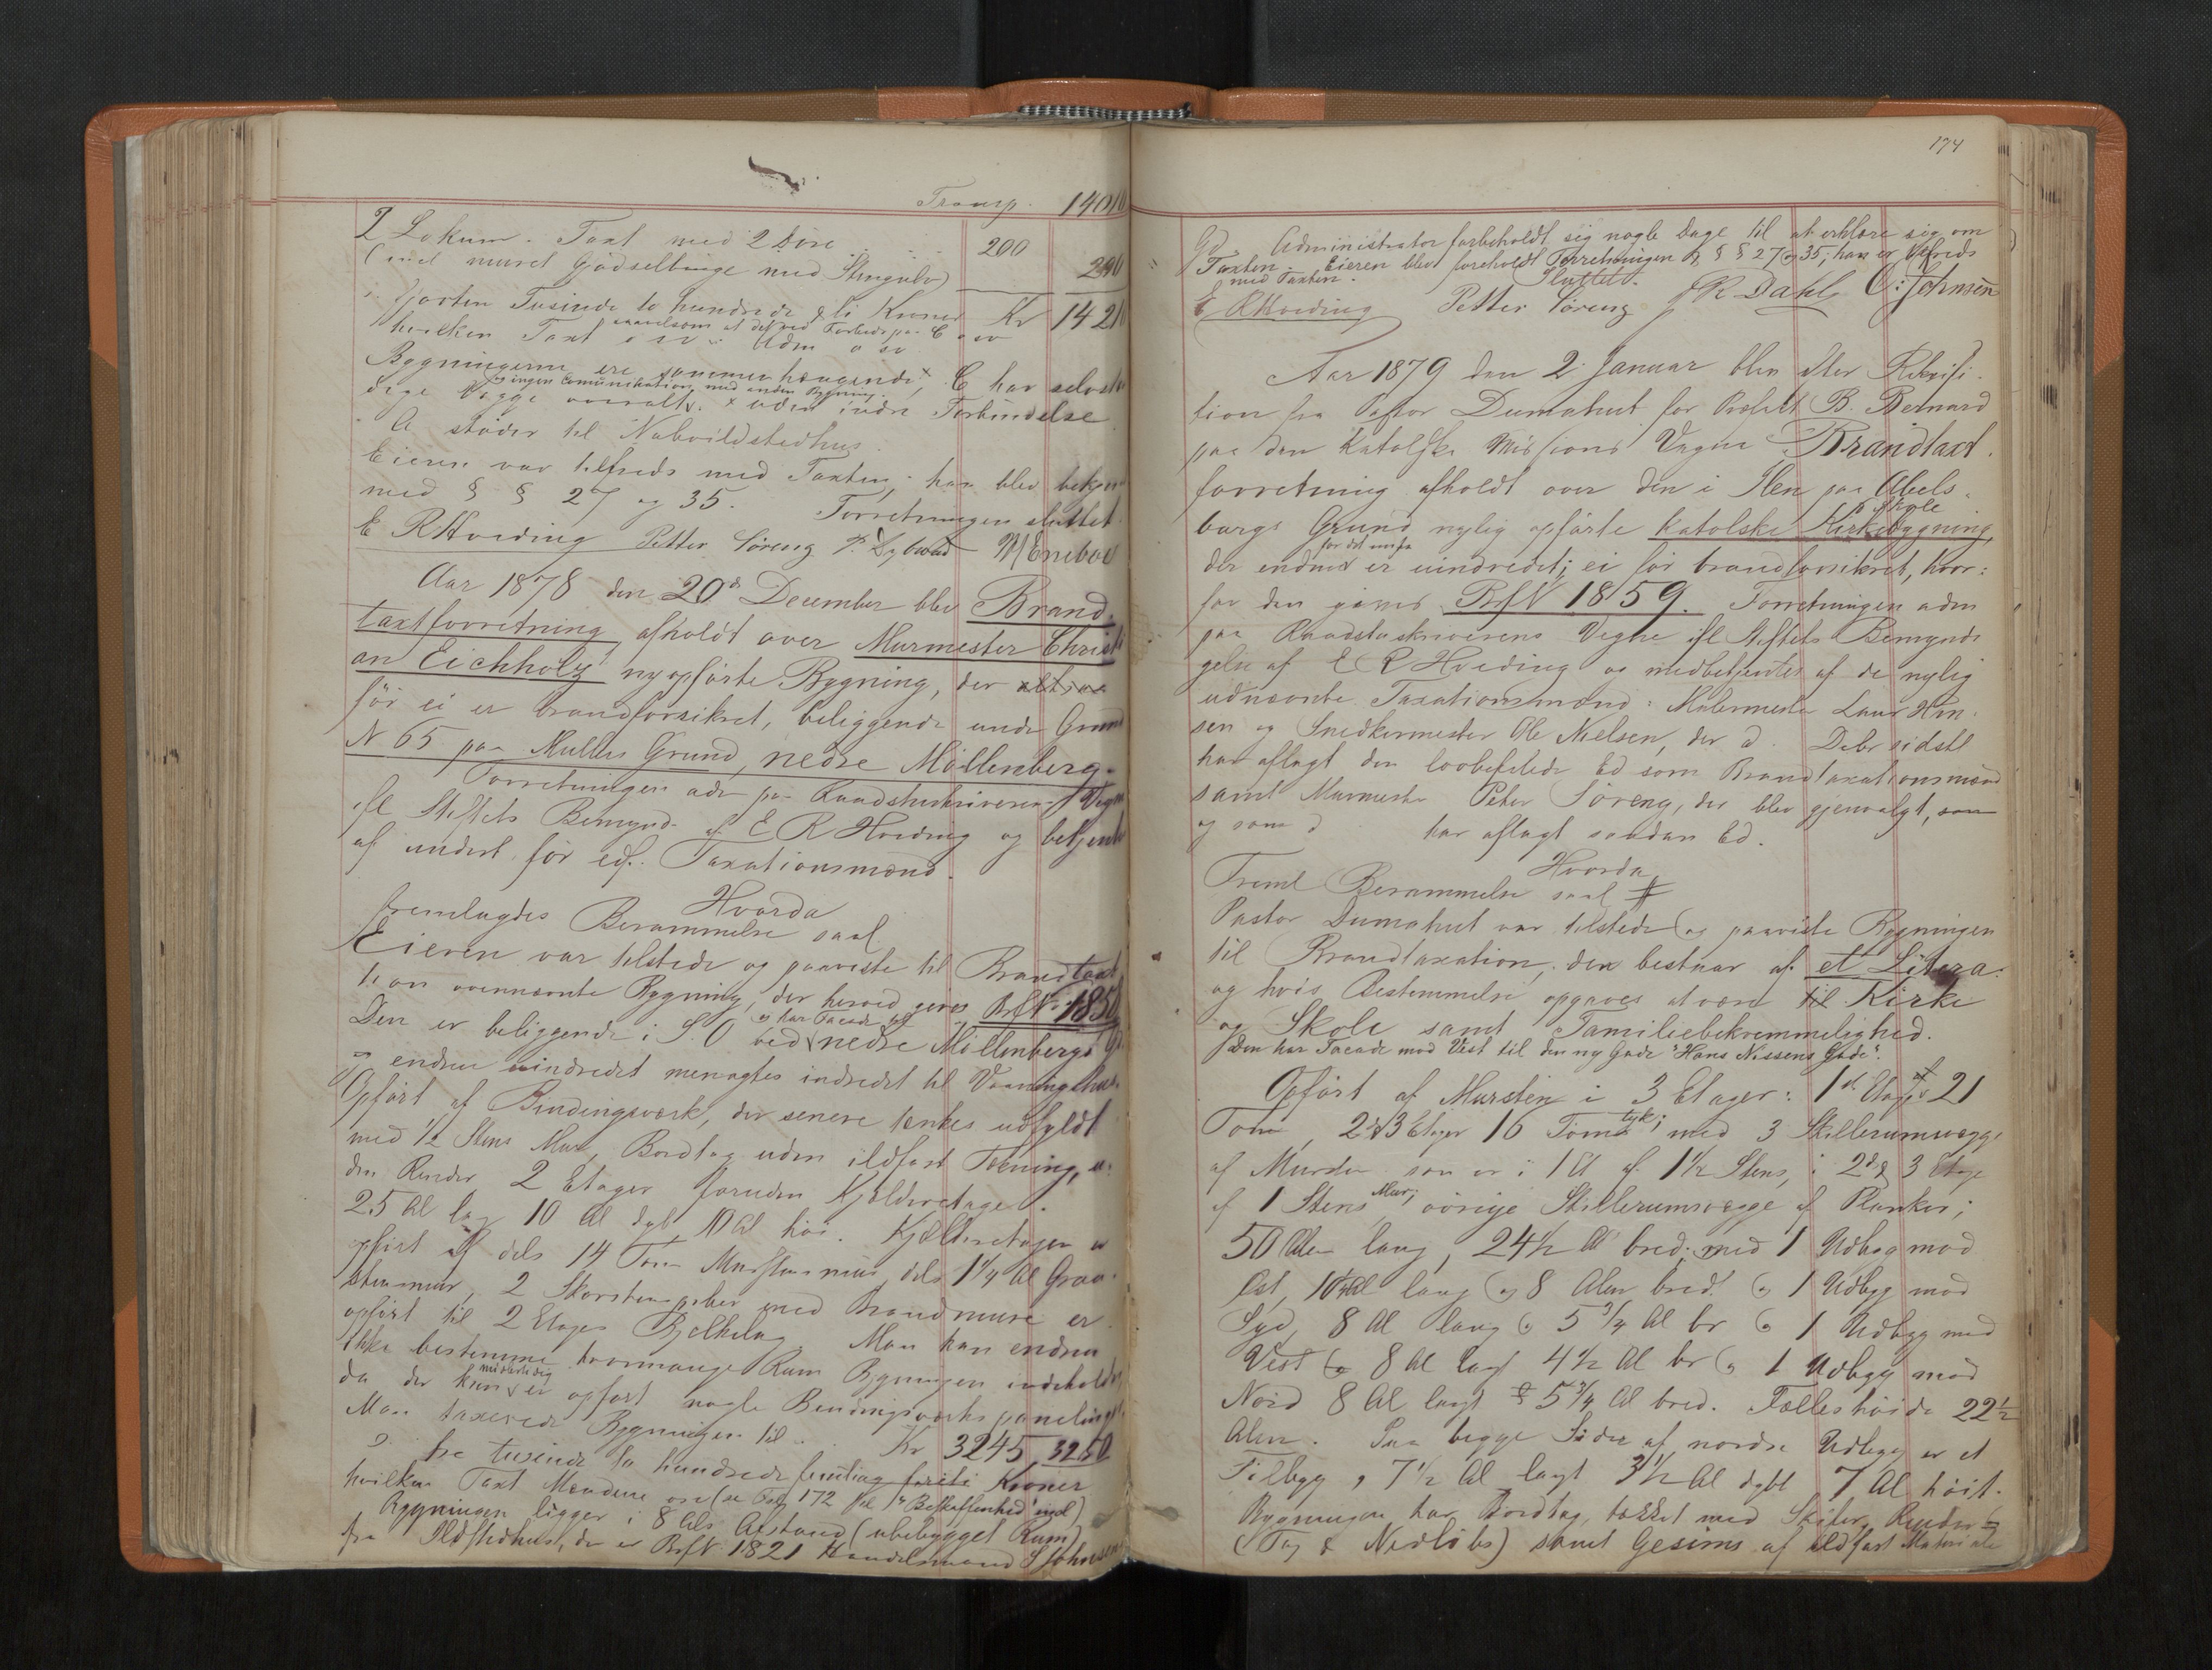 Transp. 14010
2 Lokum. Taxt med 2 Döre 200
(incl muret Gjödselbinge med Stengulv) 200
Fjorten Tusinde to hundrede & ti Kroner Kr 1421
hvilken Taxt
Bygningerne ere sammenhængende, C har selvstæn
dige Vægge overalt. x uden indre Forbindelse
ingen Communikation med anden Bygning.
A støder til Naboildstedhus.
Eieren var tilfreds med Taxten, han blev bekjen
med § § 27 og 35. Forretningen sluttet
E R Hveding Petter Söreng P. Dybwad M Eneboe
Aar 1878 den 20de December blev Brand-
taxtforretning afholdt over Murmester Christi
an Eichholz nyopförte Bygning, der
för ei er brandforsikret, beliggende under Grund
N 65 paa Mullers Grund, nedre Möllenberg.
Forretningen adm paa Raadstueskriverens Vegne
ifl Stiftets Bemynd. af E R Hveding og betjent
af undert. för edf. Taxationsmænd.
Hvorda
fremlagdes Berammelse saal
Eieren var tilstede og paaviste til Brandtaxt
tion ovennævnte Bygning, der herved gives BrfN. 1858
Den er beliggende i S. O ved nedre Möllenbergs G
og har Facade
og endnu uindredet menagtes indredet til Vaaningshus.
Opfört af Bindingsværk, der senere tænkes udfyldt
med 1/2 Stens Mur, Bordtag uden ildfast Tækning, u-
den Render 2 Etager foruden Kjælderetage.
25 Al lag 10 Al dyb, 10 Al höi. Kjælderetagen er
opfört af dels 14 Tom Murstensmur, dels 1 1/4 Al Graa-
stensmur, 2 Skorstenspiber med Brandmure er
opfört til 2 Etages Bjelkelag. Man kan endnu
ikke bestemme hvormange Rum Bygningen indeholder
da der kun midlertidig er opfört nogle Bindingsværks panelings
Man taxerede Bygningen til Kr 3245 3250
tre tusinde to hundrede femtiog förti Kroner
hvilken Taxt Mændene (se Fol 172 Beskaffenhed
Bygningen ligger i 8 Als Afstand (ubebygget Rum)
fra Ildstedhus, der er BrfN. 1821 Handelsmand S Johnsens
174
Gd. Administrator forbeholdt sig nogle Dage til at erklære sig om
Taxten. Eieren blev foreholdt Forretningen & § § 27 & 35; han er tilfreds
med Taxten. Sluttet.
E R Hveding Petter Söreng J R Dahl O: Johnsen
Aar 1879 den 2. Januar blev efter Rekvisi-
tion fra Pastor Dumahut for Præfekt B. Bernard
paa den katolske Missions Vegne Brandtaxt-
forretning afholdt over den i Ilen paa Abels-
borgs Grund nylig opförte katolske Kirkebygning,
& Skole
der endnu for det meste er uindredet; ei för brandforsikret, hvor-
for den gives BrfN 1859. Forretningen adm
paa Raadstueskriverens Vegne ifl Stiftets Bemyndi
gelse af E R Hveding og medbetjentes af de nylig
udnævnte Taxationsmænd: Malermester Laur Han-
sen og Snedkermester Ole Nielsen, der d. Debr sidstl
har aflagt den lovbefalede Ed som Brandtaxationsmænd
samt Murmester Peter Söreng, der blev gjenvalgt, som
og som d har aflagt saadan Ed.
Hvorda
Freml Berammelse saal
Pastor Dumahut var tilstede og paaviste Bygningen
til Brandtaxation, den bestaar af et Litera:
og hvis Bestemmelse opgaves at være til Kirke
og Skole samt Familiebekvemmelighed.
Den har Facade mod Vest til den ny Gade "Hans Nissens Gade".
Opfört af Mursten i 3 Etager: 1ste Etage 21
Tom, 2 & 3 Etager 16 Toms tyk; med 3 Skillerumsvægge
af Mursten som er i 1 Et af 1 1/2 Stens, i 2d & 3 Etage
af 1 Stens Mur; övrige Skillerumsvægge af Planker;
50 Alen lang, 24 1/2 Al bred; med 1 Udbyg mod
Öst, 10 Al lang og 8 Alen bred. & 1 Udbyg mod
Syd, 8 Al lang & 5 3/4 Al br & 1 Udbyg mod
Vest 8 Al lagt 4 1/2 Al br & 1 Udbyg mod
Nord 8 Al lagt & 5 3/4 Al bred. Fælleshöide 22 1/2
Alen. Paa begge Sider af nordre Udbyg er et
Tilbyg, 7 1/2 Al lagt 3 1/2 Al dybt 7 Al höit.
Bygningen har Bordtag, tækket med Skifer, Render
(Tag & Nedlöbs) samt Gesims af ildfast Materiale